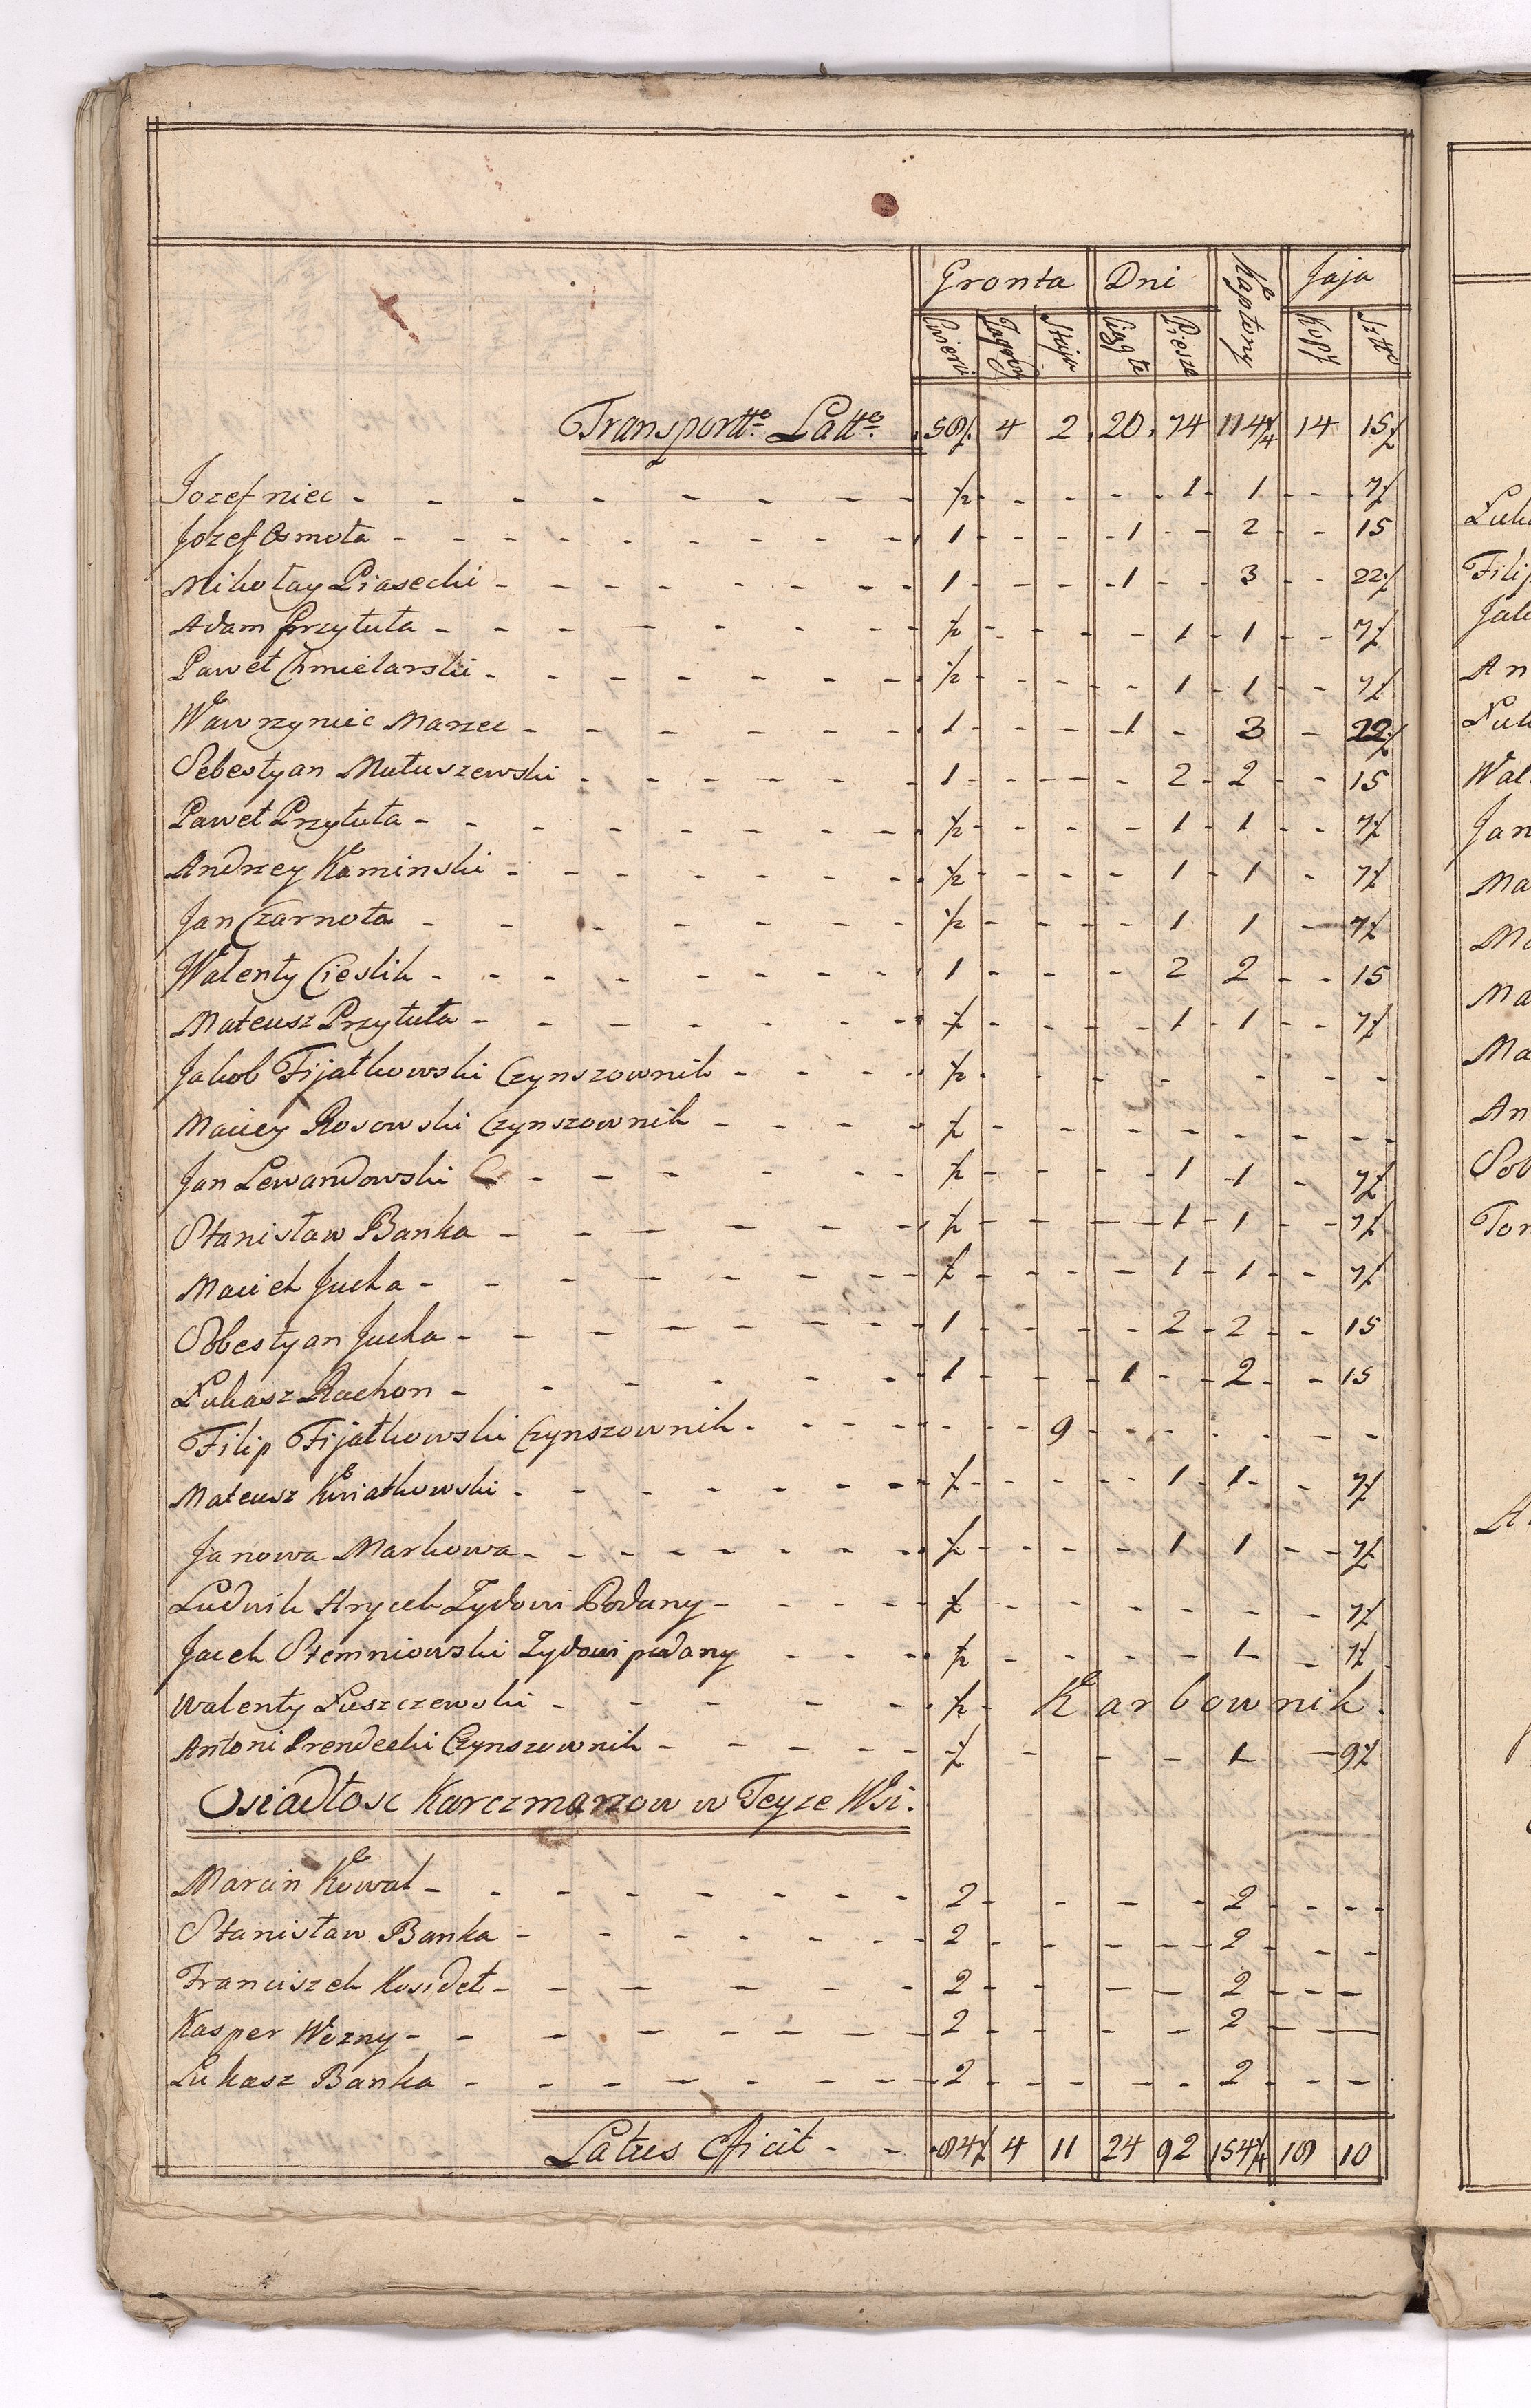 Gronta Dni Kapłony Jaja
Cwierci Zagony Staja Ciągłe Piesze Kopy Sztu
Transportte Latte 58½ 4 2 20 74 114¾ 14 15½
Jozef niec - ½ - - - 1 1 - 7½
Jozef Osmola - 1 - - 1 - 2 - 15
Mikołay Piasecki - 1 - - 1 - 3 - 22½
Adam Przytuła - ½ - - - 1 1 - 7½
Paweł Chmielarski - ½ - - - 1 1 - 7½
Wawrzyniec Marzec - 1 - - 1 - 3 - 22½
Sebestyan Matuszewski - 1 - - - 2 2 - 15
Paweł Przytuła - ½ - - - 1 1 - 7½
Andrzey Kaminski - ½ - - - 1 1 - 7½
Jan Czarnota - ½ - - - 1 1 - 7½
Walenty Cieslik - 1 - - - 2 2 - 15
Mateusz Przytuła - ½ - - - 1 1 - 7½
Jakob Fijałkowski Czynszownik - ½ - - - - - - -
Maciey Rosowski Czynszownik - ½ - - - - - - -
Jan Lewandowski - ½ - - - 1 1 - 7½
Stanisław Banka - ½ - - - 1 1 - 7½
Maciek Jucha - ½ - - - 1 1 - 7½
Sobestyan Jucha - 1 - - - 2 2 - 15
Łukasz Rachon - 1 - - 1 - 2 - 15
Filip Fijałkowski Czynszownik - - - 9 - - - - -
Mateusz Kwiatkowski - ½ - - - 1 1 - 7½
Janowa Markowa - ½ - - - 1 1 - 7½
Ludwik Hrycek Zydowi Podany - ½ - - - - - - 7½
Jacek Stemniowski Zydowi podany - ½ - - - - 1 - 7½
Walenty Łuszczewski - ½ - Karbownik.
Antoni Prendecki Czynszownik - ½ - - - 1 - 9½
Osiadłosc Karczmarzow w Teyze Wsi.
Marcin Kowal - 2 - - - - 2 - -
Stanisław Banka - 2 - - - - 2 - -
Franciszek Kosideł - 2 - - - - 2 - -
Kasper Wozny - 2 - - - - 2 - -
Łukasz Banka - 2 - - - - 2 - -
Latus Eficit - 84½ 4 11 24 92 154¾ 18 10
Filip
Jan